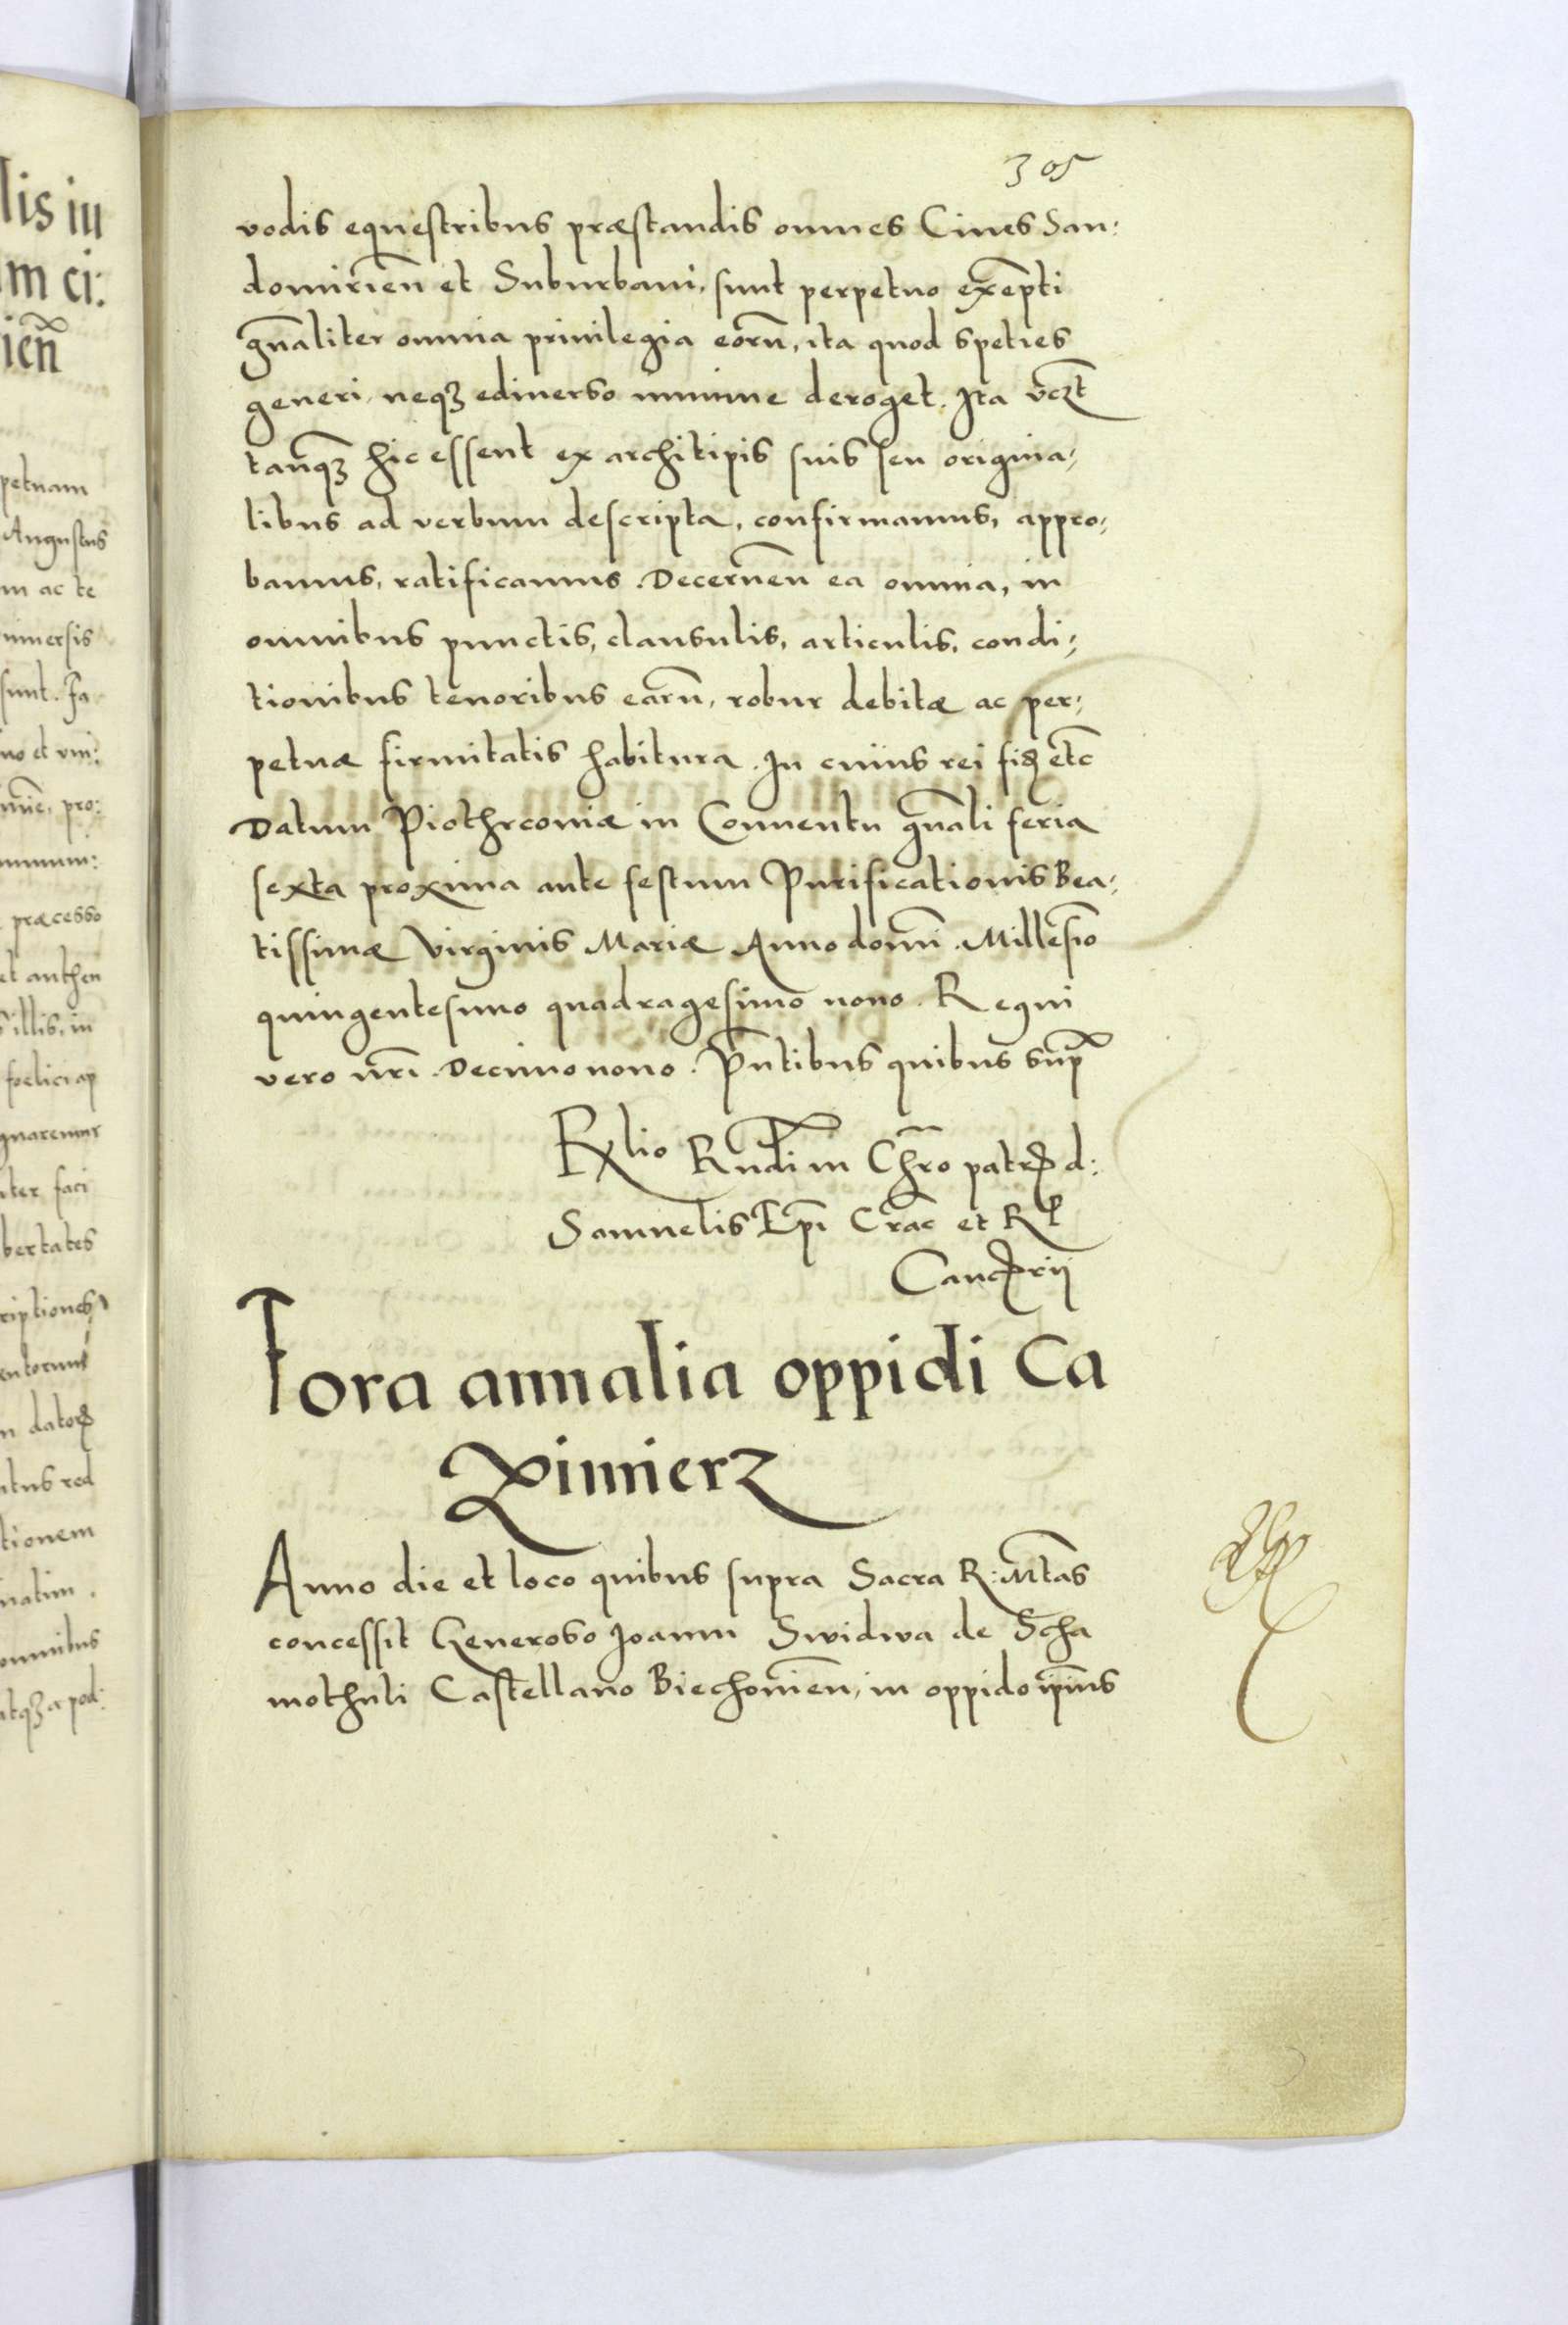 305
vodis equestribus præstandis omnes Ciues San:
domirień et Suburbani, sunt perpetuo exēpti
gn̄aliter omnia priuilegia eorū, ita quod speties
generi, neqʒ ediuerso minime deroget. Ita vcʒt
tanqʒ hic essent ex architipis suis seu origina,
libus ad verbum descripta, confirmamus, appro,
bamus, ratificamus. Decerneń ea omnia, in
omnibus punctis, clausulis, articulis, condi,
tionibus tenoribus earū, robur debitæ ac per,
petuæ firmitatis habitura. In cuius rei fid etc̄
Datum Piothrcoviæ in Conuentu gn̄ali feria
sexta proxima ante festum Purificationis Bea,
tissimæ Virginis Mariæ Anno domī. Millesīo
quingentesimo quadragesimo nono. Regni
vero nrī. Decimo nono. Pn̄tibus quibus sup̄
Rlio Rndī in Chr̄o patrꝭ d:
Samuelis Ep̄i Crac̄ et RP
Cancꝭrij
Fora annalia oppidi Ca
ximierz
Anno die et loco quibus supra Sacra R: Mtās
concessit Generoso Joanni Swidwa de Scha
mothuli Castellano Biechovień, in oppido ip̄ius
lis iu
m ci:
ień
petuam
Augustus
m ac te
niuersis
sunt. Fa
no et vni:
pro:
præcesso
et authen
illis, in
foelici ap
gnaremur
iter faci
bertates
riptiones,
entorum
n datorꝭ
itus red
tionem
natim.
omnibus
atqʒ a pod: